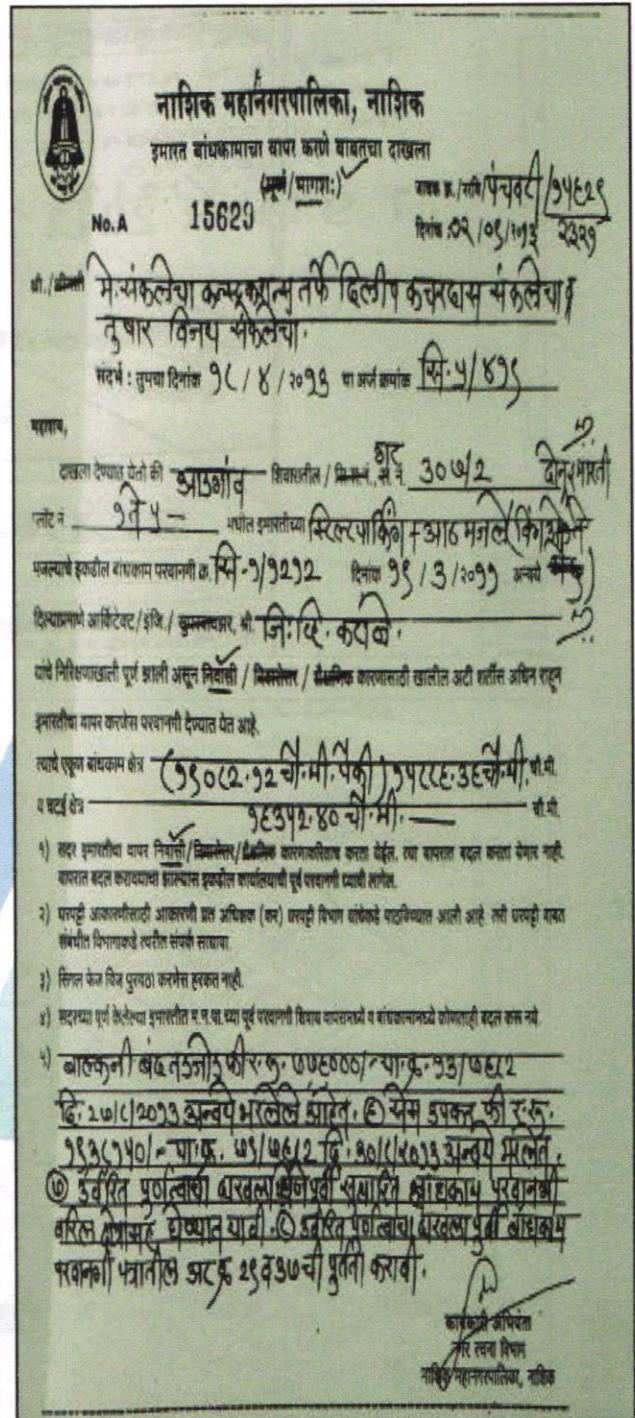 नाशिक महानगरपालिका, नाशिक
इमारत बांधकामाचा वापर करणे बाबतचा दाखला
(पूर्ण/भागशः) ✓
जावक क्र./नरवि/पंचवटी/१५६२९
No.A 15629 दिनांक :०२/०९/२०१३ २३२१
श्री./श्रीमती मे.संकलेचा कन्स्ट्रक्शन्स तर्फे दिलीप कचरदास संकलेचा व
तुषार विजय संकलेचा.
संदर्भ : तुमचा दिनांक १८/४/२०१३ चा अर्ज क्रमांक सि.५/४१९
महाशय,
दाखला देण्यात येतो की आडगांव शिवारातील / सि.स.नं., स.नं. गट ३०७/2
प्लॉट नं. १ते ५ — मधील इमारतीच्या स्टिल्टपार्किंग + आठ मजले
मजल्याचे इकडील बांधकाम परवानगी क्र. सि-१/१२१२ दिनांक १९/३/२०११ अन्वये
दिल्याप्रमाणे आर्किटेक्ट/इंजि./ सुपरवायझर, श्री.
यांचे निरिक्षणाखाली पूर्ण झाली असून निवासी / निवासेत्तर / शैक्षणिक कारणासाठी खालील अटी शर्तीस अधिन राहून
इमारतीचा वापर करणेस परवानगी देण्यात येत आहे.
त्याचे एकूण बांधकाम क्षेत्र (१९०८२.१२ चौ.मी.पैकी) १५८८६.३६चौ.मी. चौ.मी.
व चटई क्षेत्र १६३५१.४० चौ.मी. — चौ.मी.
१) सदर इमारतीचा वापर निवासी/निवासेत्तर/शैक्षणिक कारणाकरिताच करता येईल. त्या वापरात बदल करता येणार नाही.
वापरात बदल करावयाचा झाल्यास इकडील कार्यालयाची पूर्व परवानगी घ्यावी लागेल.
२) घरपट्टी आकारणीसाठी आकारणी प्रत अधिक्षक (कर) घरपट्टी विभाग यांचेकडे पाठविण्यात आली आहे. तरी घरपट्टी बाबत
संबंधीत विभागाकडे त्वरीत संपर्क साधावा.
३) सिंगल फेज विज पुरवठा करणेस हरकत नाही.
४) सदरच्या पूर्ण केलेल्या इमारतीत म.न.पा.च्या पूर्व परवानगी शिवाय वापरामध्ये व बांधकामामध्ये कोणताही बदल करू नये.
५) बाल्कनी बंद तडजोड फी र.रू. ७७६०००/- पा.क्र. १३/७६८2
दि. २७/८/२०१३ अन्वये भरलेले आहेत. ⑥ सेस उपकर फी र.रू.
१९३८१५०/- पा.क्र. ७९/७६८2 दि. ३०/८/२०१३ अन्वये भरलेत.
⑦ उर्वरित पूर्णत्वाचा दाखला घेणेपूर्वी सुधारित बांधकाम परवानगी
वरिल क्षेत्रासह घेण्यात यावी. ⑧ उर्वरित पूर्णत्वाचा दाखला पूर्वी बांधकाम
परवानगी पत्रातील अट क्र २९ व ३७ ची पुर्तता करावी.
कार्यकारी अभियंता
नगर रचना विभाग
नाशिक महानगरपालिका, नाशिक